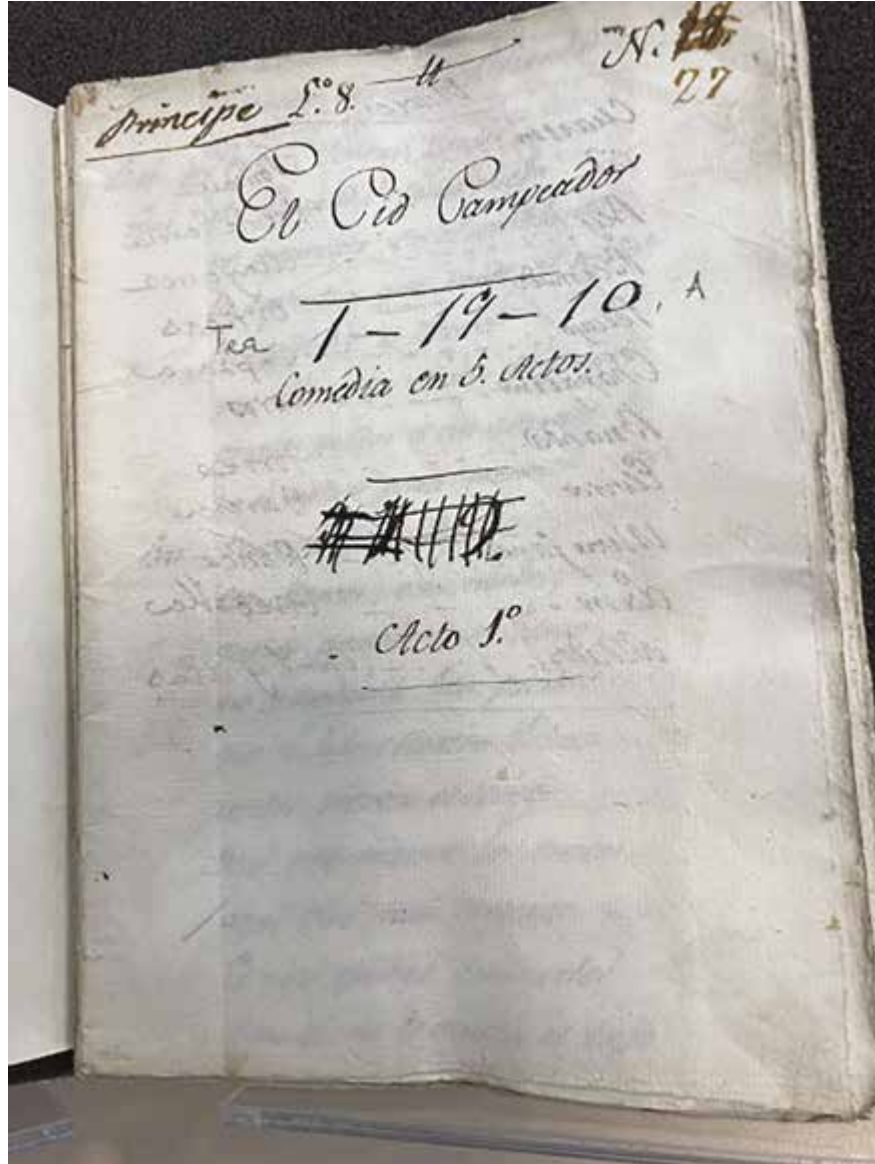 Principe L.º 8. N.
27
El Cid Campeador
Tea 1-19-10, A
Comedia en 5. Actos.
Acto 1.º